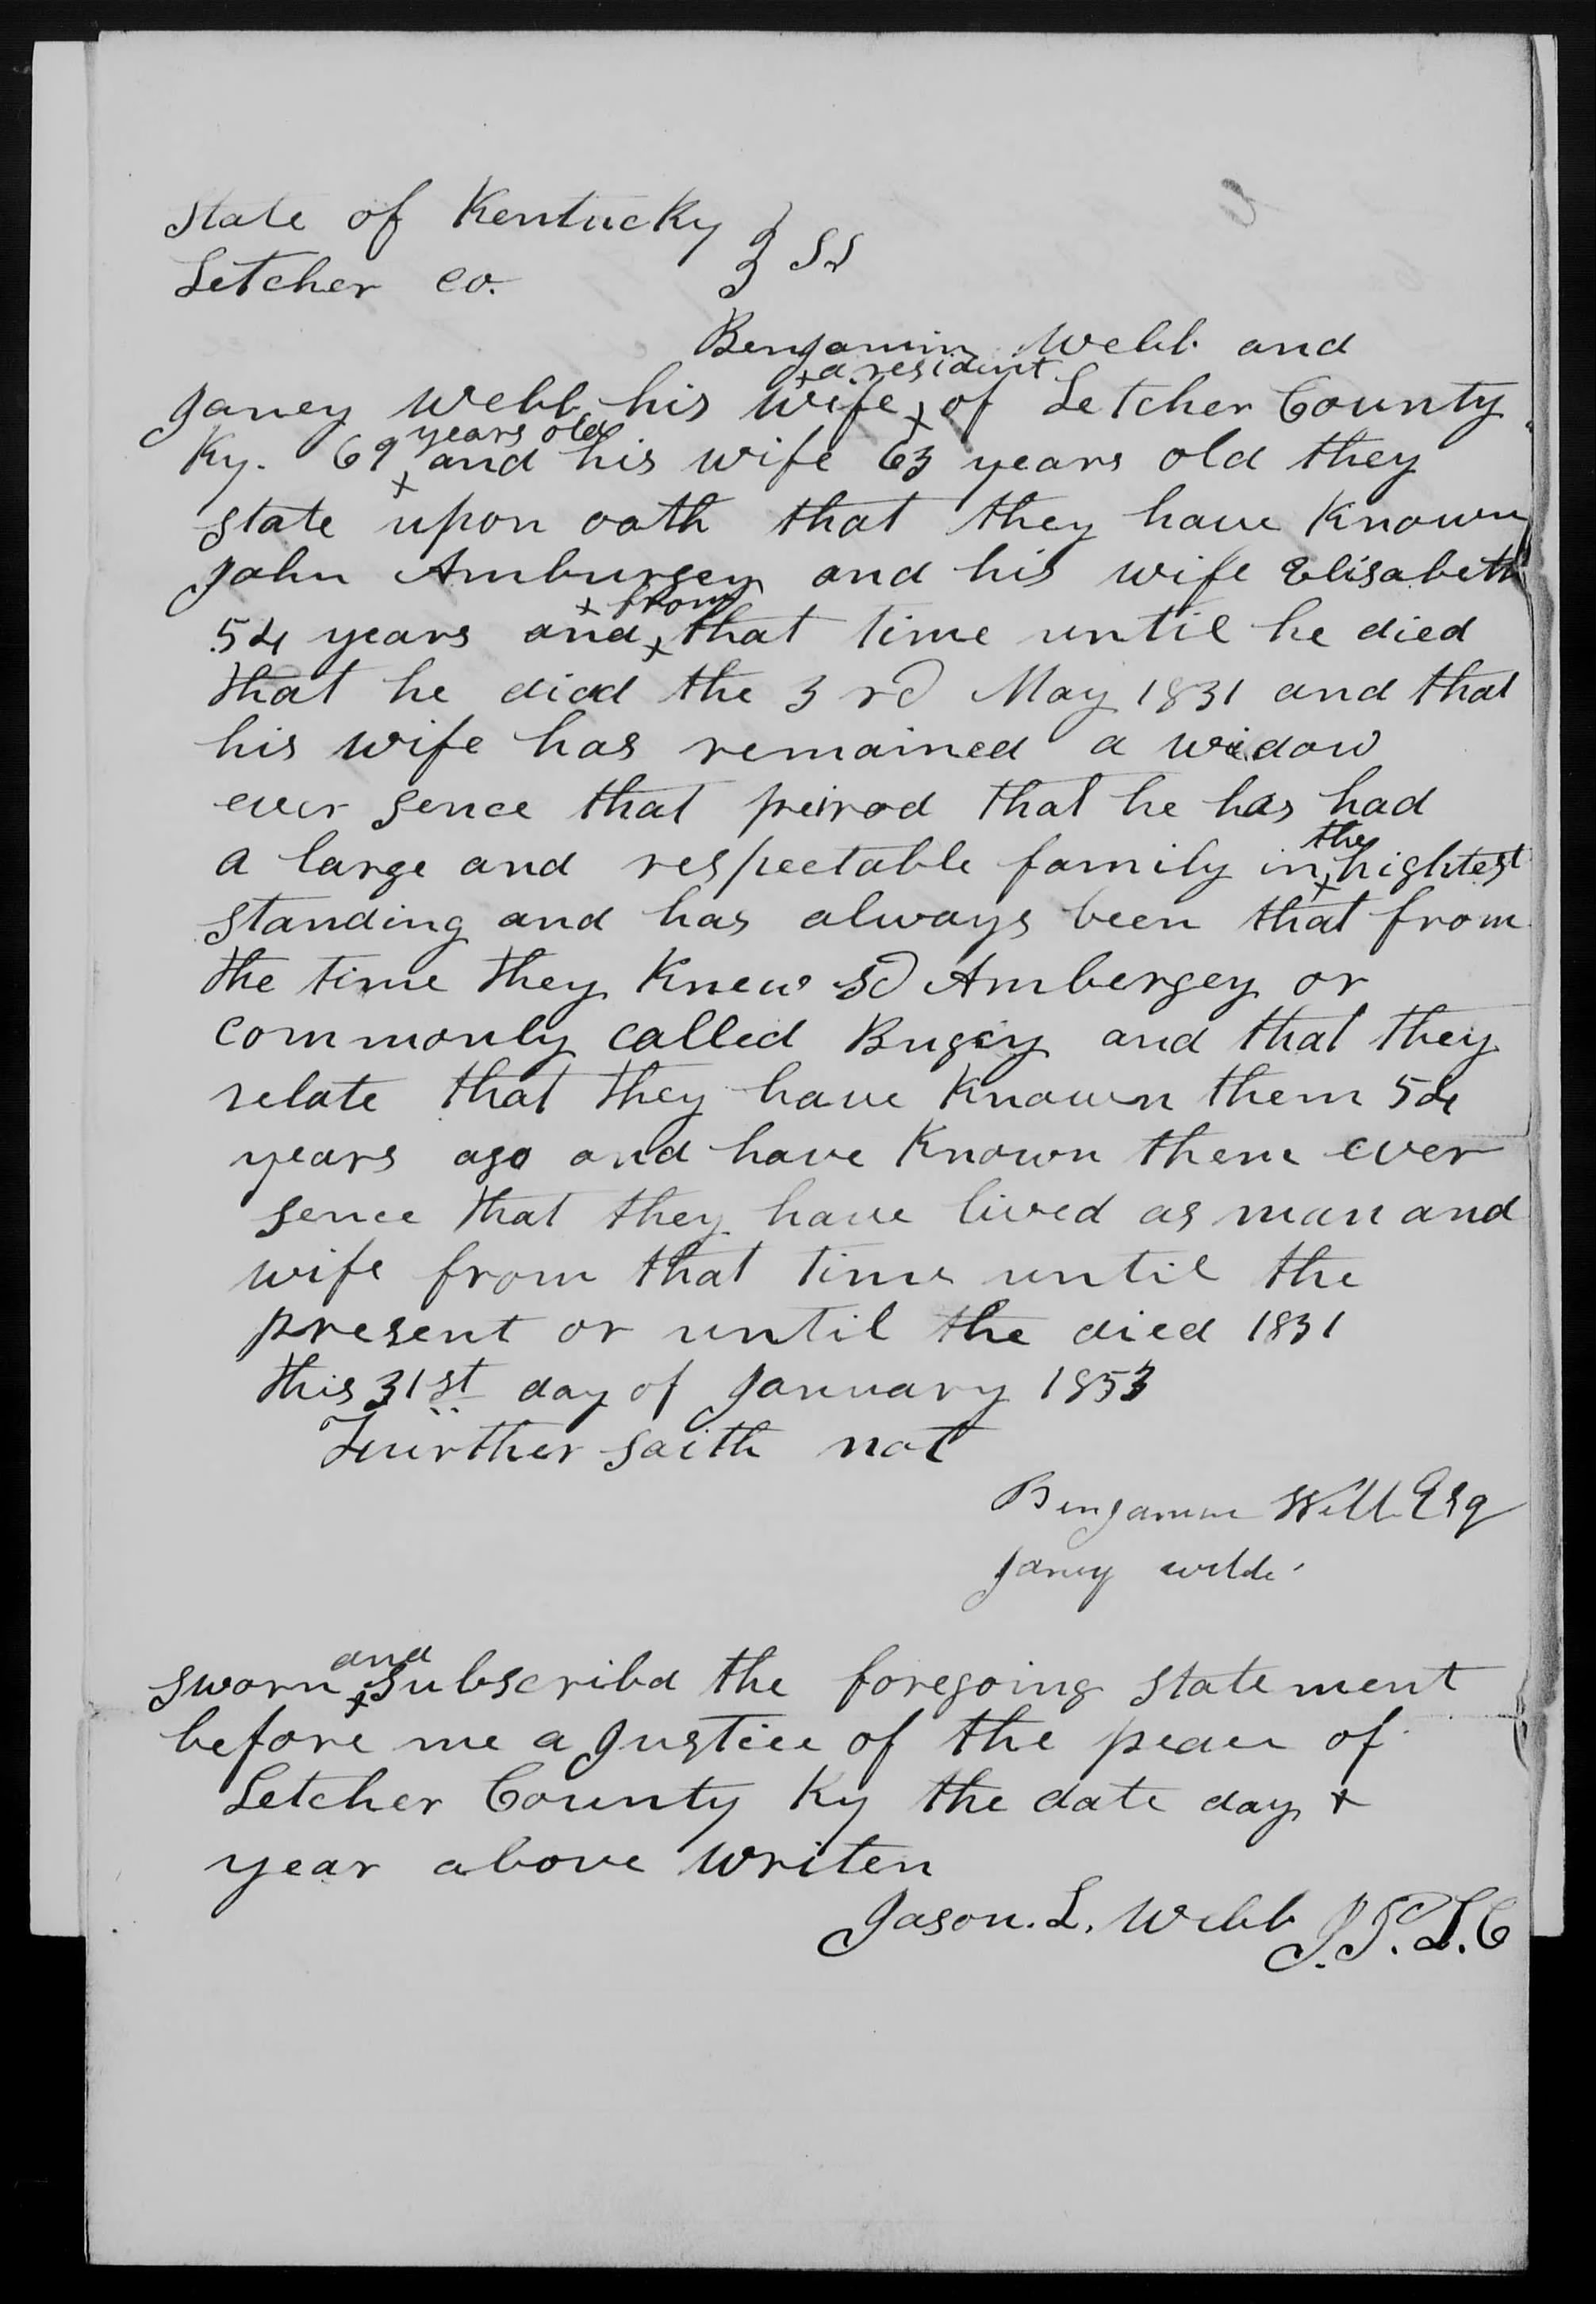 State of Kentucky } SS
Letcher Co.
Benjamin Webb and
Janey Webb his wife x a resident of Letcher County
Ky. 69 x years old and his wife 63 years old they
state upon oath that they have Known
John Amburgey and his wife Elisabeth
54 years and x from that time until he died
that he died the 3rd May 1831 and that
his wife has remained a widow
ever sence that peirod that he has had
a large and respectable family in x the hightest
standing and has always been that from
the time they Knew sd Ambergey or
commonly called Bugey and that they
relate that they have Known them 54
years ago and have Known them ever
sence that they have lived as man and
wife from that time until the
present or until the died 1831
this 31st day of January 1853
Further saith not
Benjamin Webb Esq
Janey Webb
Sworn x and subscribd the foregoing statement
before me a Justice of the peace of
Letcher County Ky the date day +
year above writen
Jason. L. Webb J.P.L.C